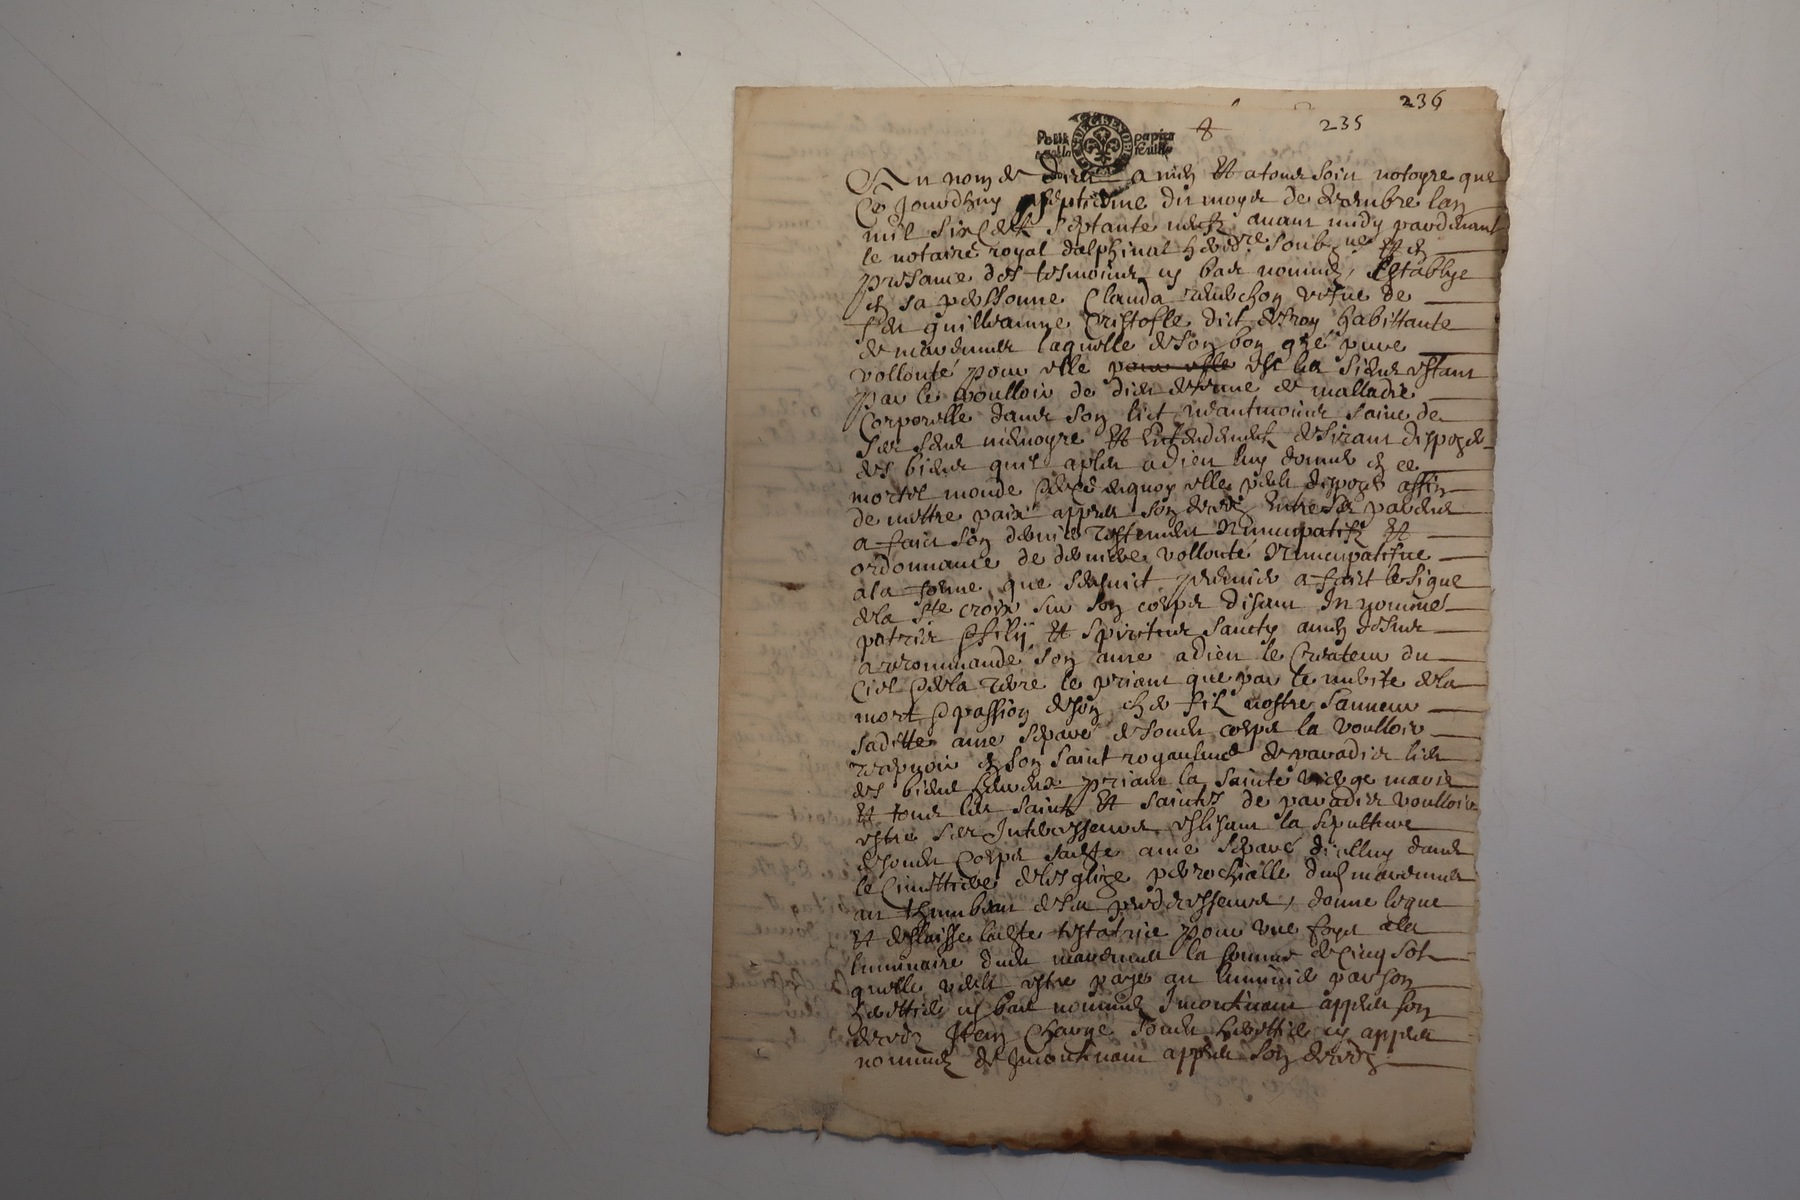 236
235
8
Petit papier
Au nom de Dieu amen et a tous soit notoyre que
Ce jourdhuy septiesme du moys de decembre lan
mil six cent septante neuf avant midy pardevant
le notaire royal dalphinal hered.re soubz.ne et en
presance des tesmoings cy bas nommez, establye
en sa personne Clauda vefve de
feu guilhaume Cristofle dict habittante
de laquelle de son bon gré pure
vollonté pour elle pour elle et les siens estant
par le voulloir de dieu detenue de malladie
Corporelle dans son lict neantmoings saine de
ses sens memoyre et entendement desirant disposer
des biens quil a pleu a dieu luy donner en ce
mortel monde et de quoy elle peult disposer affin
de mettre paix appres son deces entre ses parens
a faict son dernier testement nuncupatifz et
ordonnance de derniere vollonté nuncupatifve
a la forme que sensuict premier a faict le signe
de la ste croix sur son corps disant In nomine
patris et filij et spiritus sancty amen dessus
a recommandé son ame a dieu le Createur du
Ciel et de la terre le priant que par le merite de la
mort et passion de son cher filz nostre sauveur
saditte ame separé de son corps la voulloir
recepvoir en son saint royaulme de paradis lieu
des biens heureux priant la sainte vierge marie
et tous les saints et saintes de paradis voulloir
estre ses Intercesseurs eslisant la sepulture
de sondit Corps sadte ame separé dicelluy dans
le cimettiere de lesglize perrochialle dud
au thumbeau de ses predecesseurs, donne legue
et delaisse ladte testatrice pour une foys a la
luminaire dudit la somme de Cinq solz
quelle veult estre paye au luminier par son
herittier cy bas nommé Incontinant appres son
deces Item Charge sondit herittier cy appres
nommé de Incontinant appres son deces